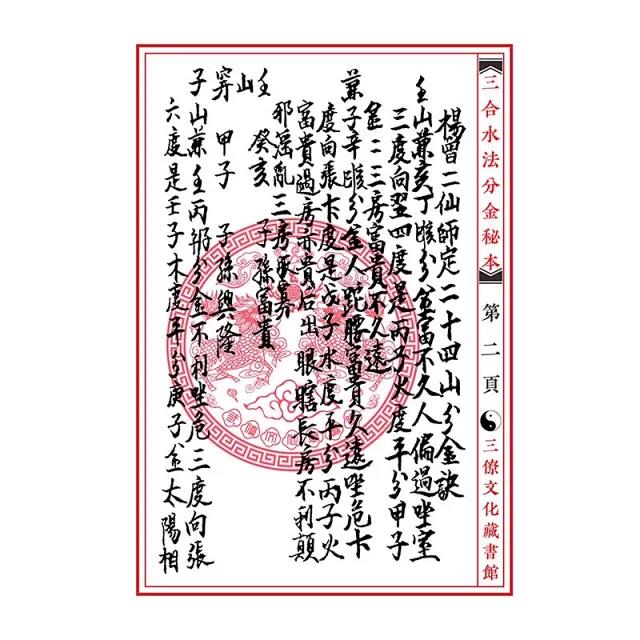 《三合水法分金秘本》
第二頁
三僚文化藏書館
楊曾二仙師定二十四山分金訣
壬山兼亥丁分金富不久人偏過坐室
三度向翌四度是丙子火度平分甲子
金二三房富貴不久遠
兼子辛分金人跎腰富貴久遠坐危卞
度向張卞度是戊子水度平分丙子火
富貴過房亦貴后出眼瞎長房不利顛
邪淫亂三房
癸亥 子孫富貴
壬山
穿 甲子 子孫興隆
子山兼壬丙分金不利坐危三度向張
六度是壬子木度平分庚子金太陽相